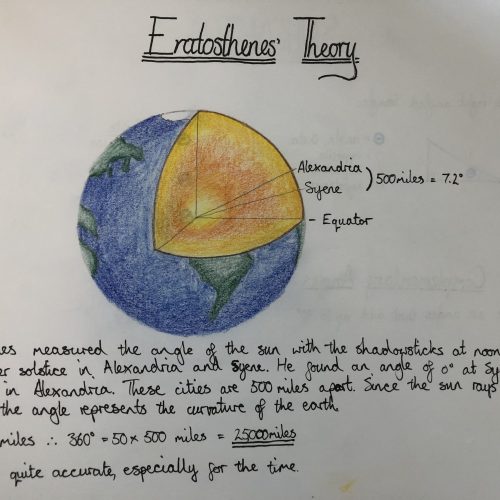 Eratosthenes' Theory.
Alexandria
Syene
) 500 miles = 7.2°
- Equator
measured the angle of the sun with the shadowsticks at noon
solstice in Alexandria and Syene. He found an angle of 0° at Sy
in Alexandria. These cities are 500 miles apart. Since the sun rays
the angle represents the curvature of the earth.
miles ∴ 360° = 50 x 500 miles = 25000 miles
quite accurate, especially for the time.